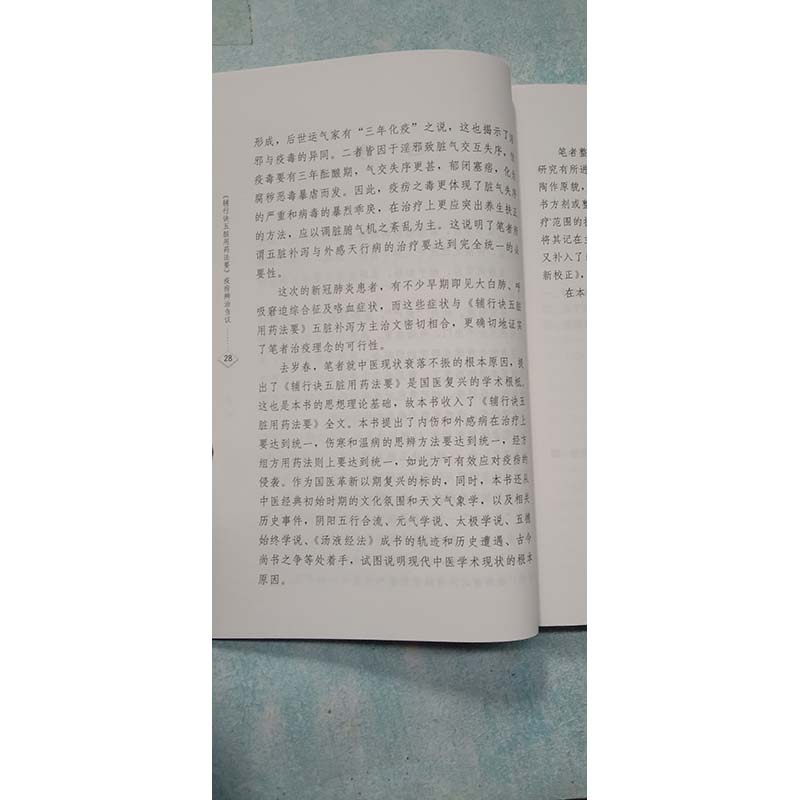 形成，后世运气家有“三年化疫”之说，这也揭示了
邪与疫毒的异同。二者皆因于淫邪致脏气交互失序，但
疫毒要有三年酝酿期，气交失序更甚，郁闭塞痞，化
腐秽恶毒暴虐而发。因此，疫疠之毒更体现了脏气失序
的严重和病毒的暴烈乖戾，在治疗上更应突出养生扶正
的方法，应以调脏腑气机之紊乱为主。这说明了笔者所
谓五脏补泻与外感天行病的治疗要达到完全统一的必
要性。
这次的新冠肺炎患者，有不少早期即见大白肺、呼
吸窘迫综合征及咯血症状，而这些症状与《辅行诀五脏
用药法要》五脏补泻方主治文密切相合，更确切地证实
了笔者治疫理念的可行性。
去岁春，笔者就中医现状衰落不振的根本原因，提
出了《辅行诀五脏用药法要》是国医复兴的学术根柢，
这也是本书的思想理论基础，故本书收入了《辅行诀五
脏用药法要》全文。本书提出了内伤和外感病在治疗上
要达到统一，伤寒和温病的思辨方法要达到统一，经方
组方用药法则上要达到统一，如此方可有效应对疫疠的
侵袭。作为国医革新以期复兴的标的，同时，本书还从
中医经典初始时期的文化氛围和天文气象学，以及相关
历史事件，阴阳五行合流、元气学说、太极学说、五德
始终学说、《汤液经法》成书的轨迹和历史遭遇、古今
尚书之争等处着手，试图说明现代中医学术现状的根本
原因。
《辅行诀五脏用药法要》疫疠辨治刍议
28
笔者整
研究有所进
陶作原貌，
书方剂或整
疗范围的
将其记在
又补入了
新校正》，
在本